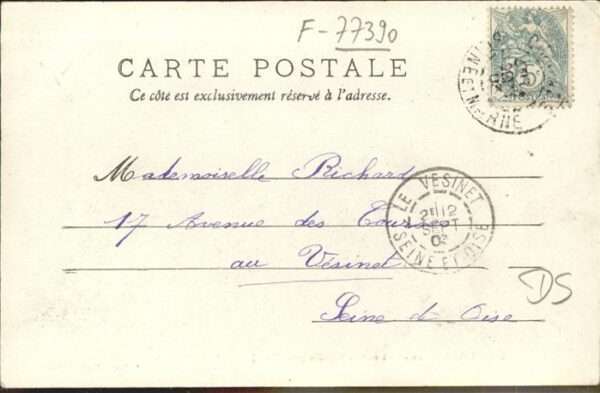 F-77390
CARTE POSTALE
Ce côté est exclusivement réservé à l'adresse.
Mademoiselle Richard
17 Avenue des Courses
au Vésinet
Seine et Oise
LE VESINET
12
SEPT
SEINE ET OISE
DS